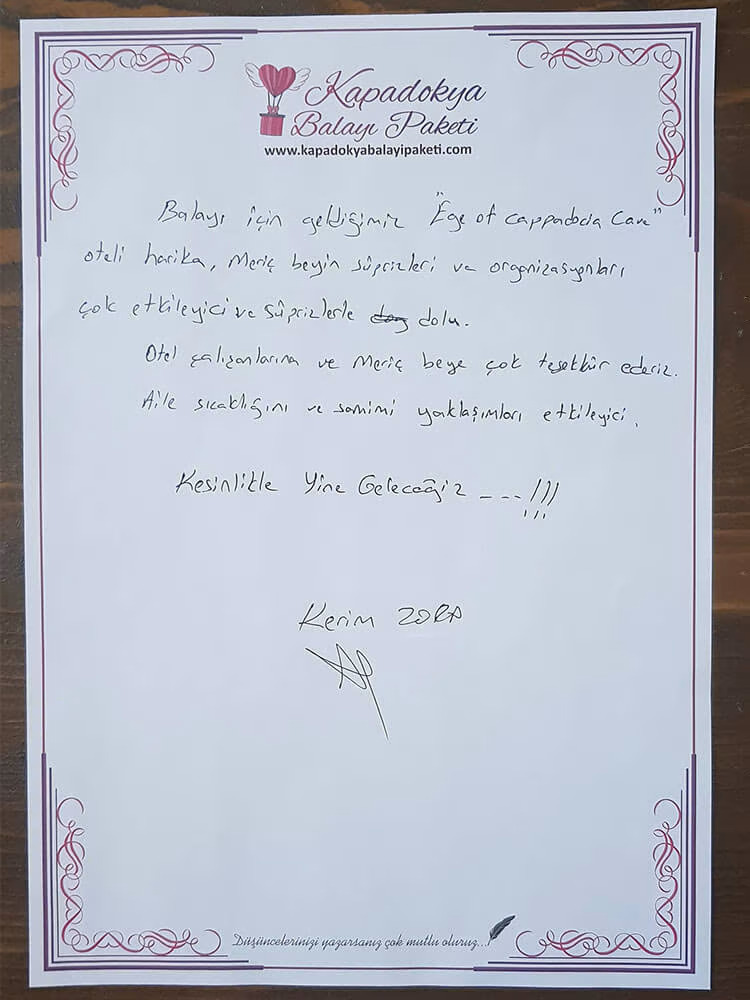 Kapadokya
Balayı Paketi
www.kapadokyabalayipaketi.com
Balayı için geldiğimiz "Ege of cappadocia Cave"
oteli harika, Meriç beyin süprizleri ve organizasyonları
çok etkileyici ve süprizlerle dolu.
Otel çalışanlarına ve Meriç beye çok teşekkür ederiz.
Aile sıcaklığını ve samimi yaklaşımları etkileyici.
Kesinlikle Yine Geleceğiz ---!!!
Kerim ZORA
Düşüncelerinizi yazarsanız çok mutlu oluruz...!